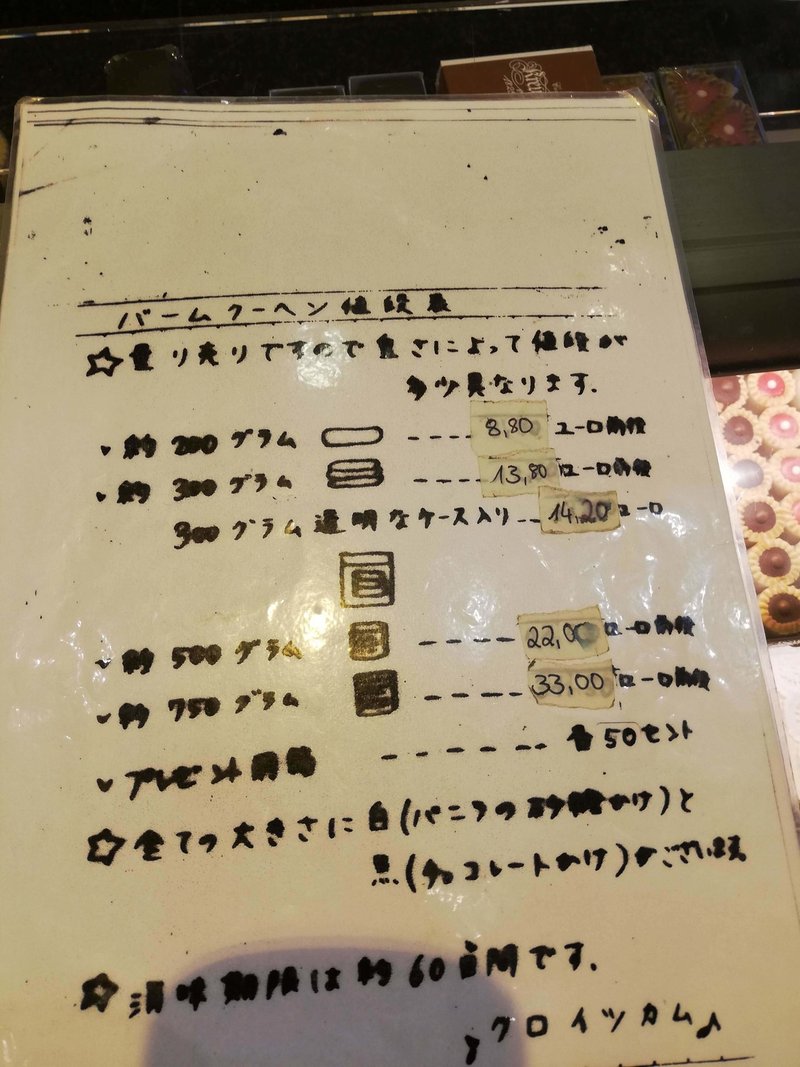 バームクーヘン値段表
☆量り売りですので重さによって値段が
多少異なります.
約 200 グラム ---- 8,80 ユーロ前後
約 300 グラム ---- 13,80 ユーロ前後
300 グラム透明なケース入り -- 14,20 ユーロ
約 500 グラム ---- 22,00 ユーロ前後
約 750 グラム ---- 33,00 ユーロ前後
プレゼント ------ 各50セント
☆全ての大きさに白(バニラの砂糖かけ)と
黒(チョコレートかけ)がございます
☆消味期限は約60日間です.
クロイツカム♪